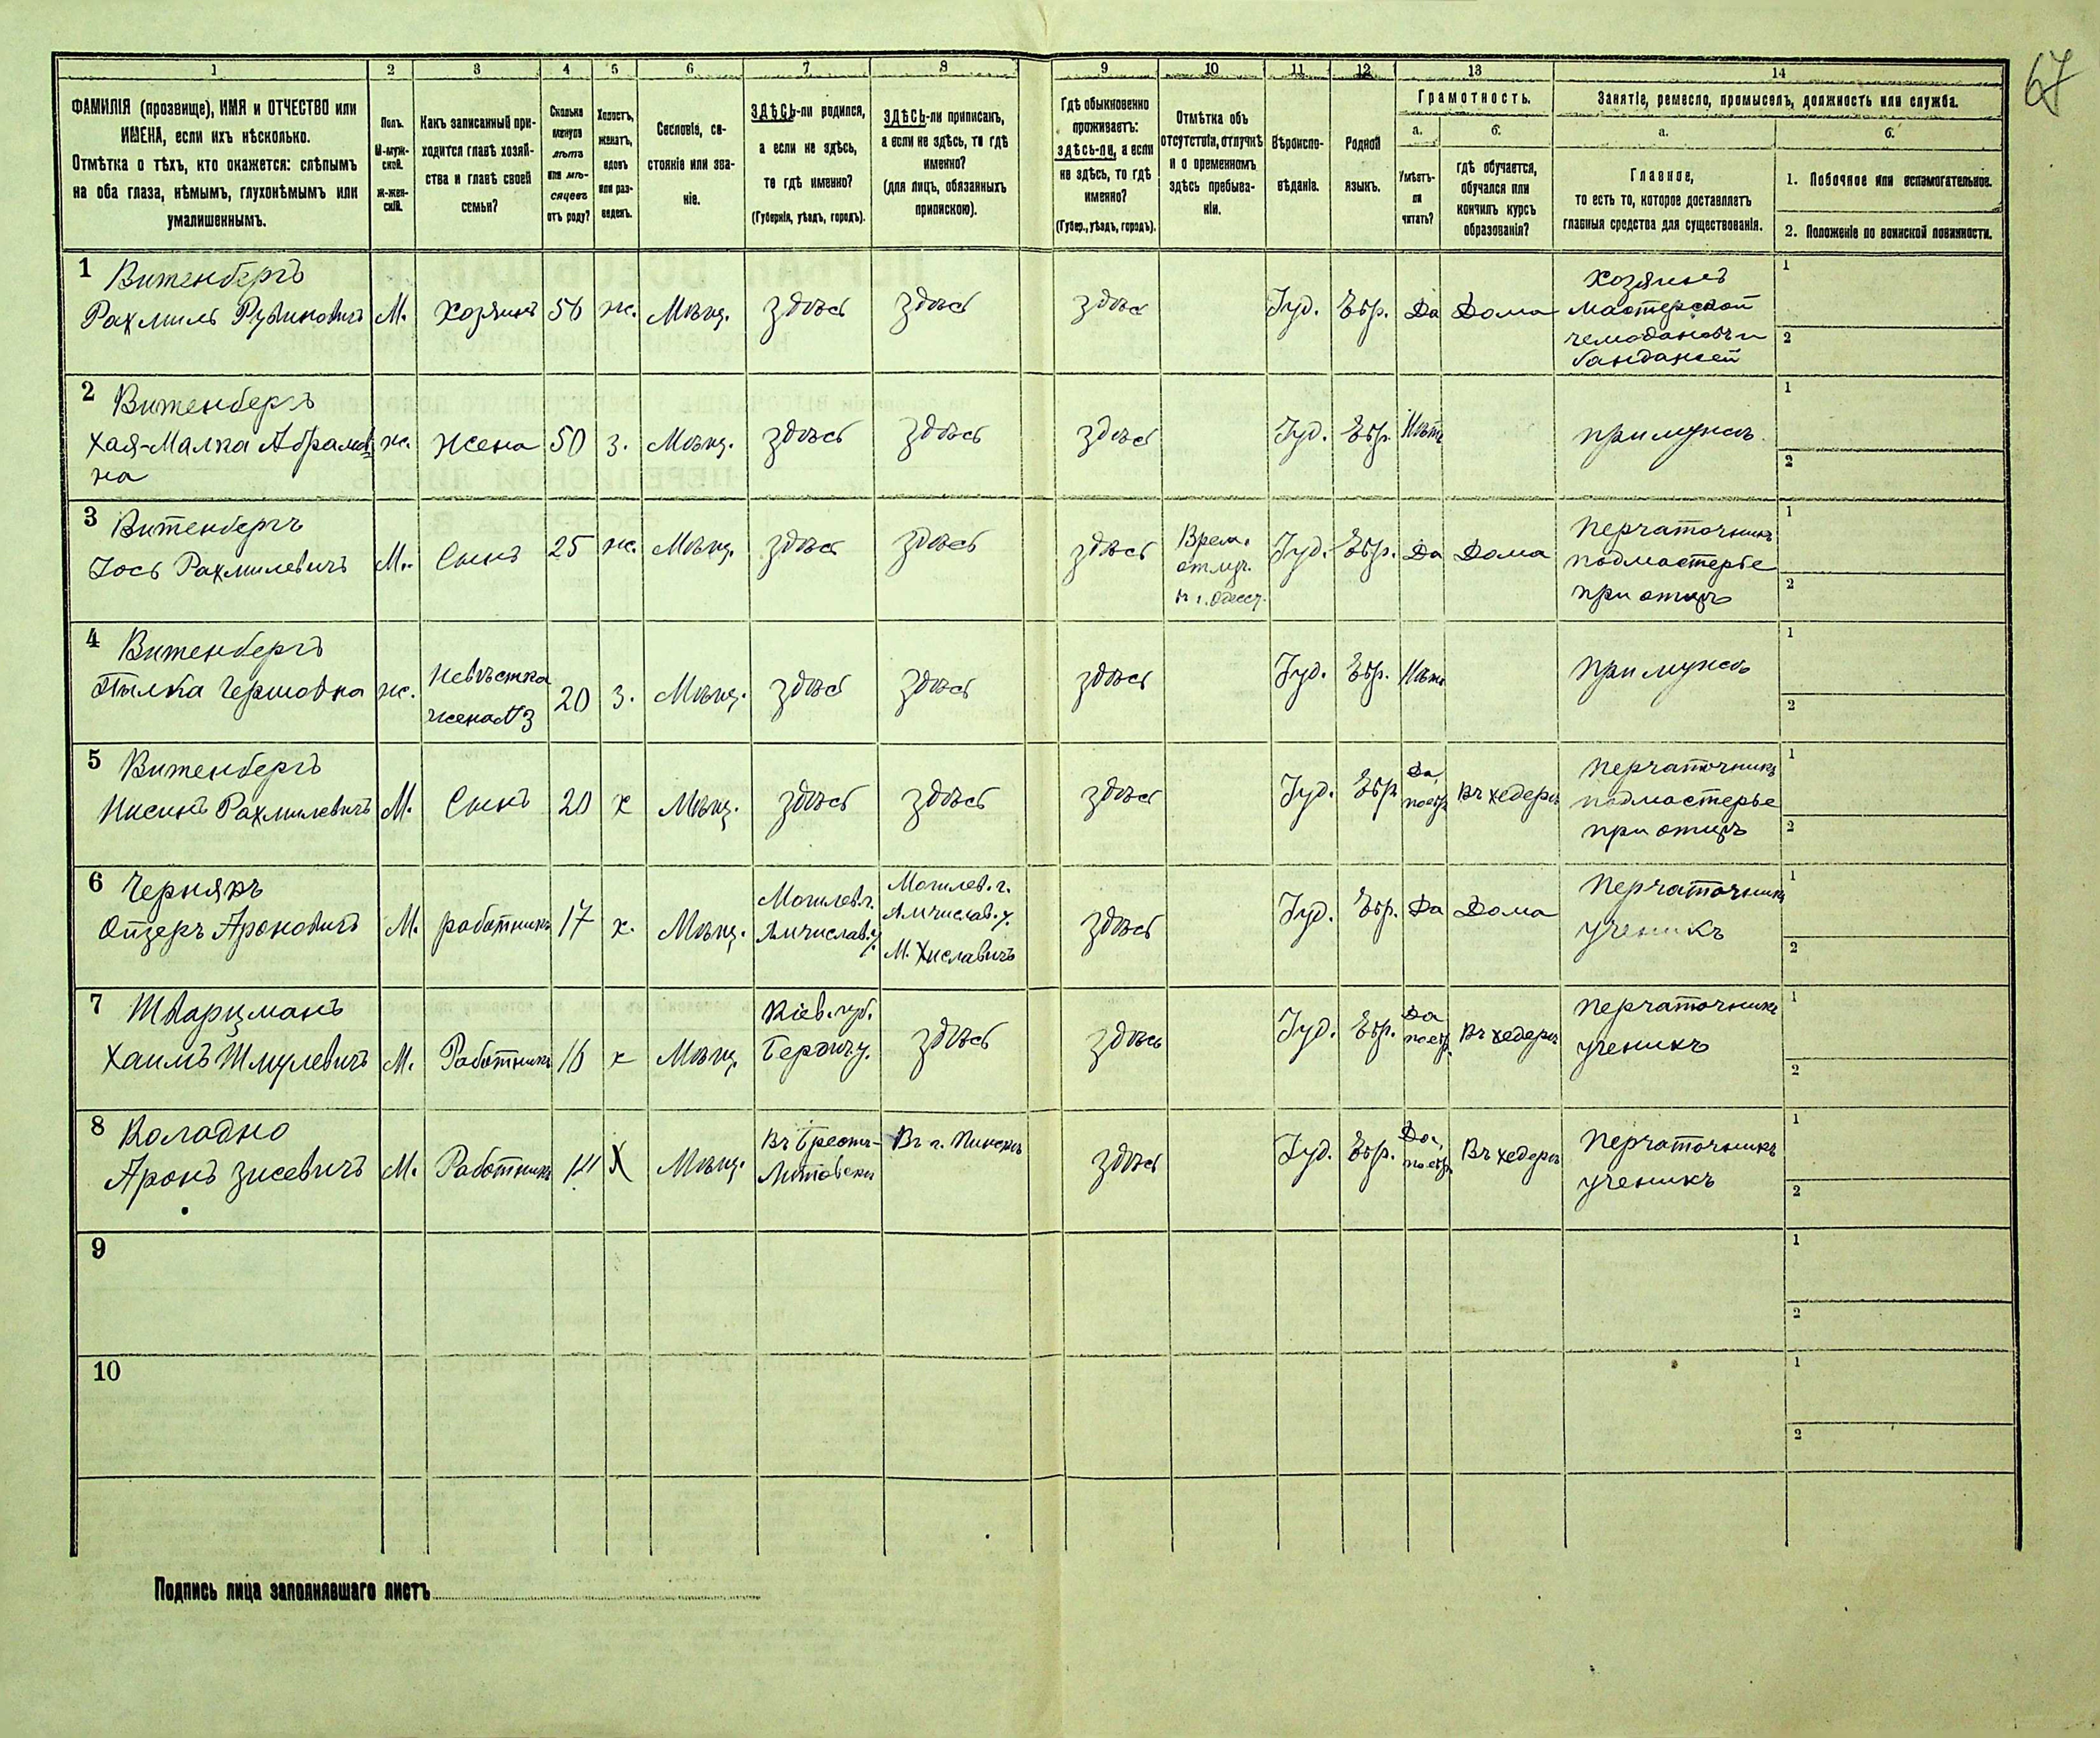 67
1 2 3 4 5 6 7 8 9 10 11 12 13 14
ФАМИЛІЯ (прозвище), ИМЯ и ОТЧЕСТВО или
ИМЕНА, если ихъ нѣсколько.
Отмѣтка о тѣхъ, кто окажется: слѣпымъ
на оба глаза, нѣмымъ, глухонѣмымъ или
умалишеннымъ.
Полъ.
М-муж-
ской.
Ж-жен-
скій.
Какъ записанный при-
ходится главѣ хозяй-
ства и главѣ своей
семьи?
Сколько
минуло
лѣтъ
или мѣ-
сяцевъ
отъ роду?
Холостъ,
женатъ,
вдовъ
или раз-
веденъ.
Сословіе, со-
стояніе или зва-
ніе.
ЗДѢСЬ-ли родился,
а если не здѣсь,
то гдѣ именно?
(Губернія, уѣздъ, городъ).
ЗДѢСЬ-ли приписанъ,
а если не здѣсь, то гдѣ
именно?
(для лицъ, обязанныхъ
припискою).
Гдѣ обыкновенно
проживаетъ:
здѣсь-ли, а если
не здѣсь, то гдѣ
именно?
(Губер., уѣздъ, городъ).
Отмѣтка объ
отсутствіи, отлучкѣ
и о временномъ
здѣсь пребыва-
ніи.
Вѣроиспо-
вѣданіе.
Родной
языкъ.
Грамотность.
а.
Умѣетъ-
ли
читать?
б.
гдѣ обучается,
обучался или
кончилъ курсъ
образованія?
Занятіе, ремесло, промыселъ, должность или служба.
а.
Главное,
то есть то, которое доставляетъ
главныя средства для существованія.
б.
1. Побочное или вспомогательное.
2. Положеніе по воинской повинности.
1 Витенбергъ
Рахмиль Рувиновичъ М. Хозяинъ 56 ж. Мѣщ. здѣсь здѣсь здѣсь Іуд. Евр. Да Дома
Хозяинъ
мастерской
чемодановъ и
бандажей
1
2
2 Витенбергъ
Хая-Малка Абрамов-
на
ж. Жена 50 з. Мѣщ. здѣсь здѣсь здѣсь Іуд. Евр. Нѣтъ при мужѣ
1
2
3 Витенбергъ
Іось Рахмилевичъ М. Сынъ 25 ж. Мѣщ. здѣсь здѣсь здѣсь
Врем.
отлуч.
въ г. Одессу.
Іуд. Евр. Да Дома
Перчаточникъ
подмастерье
при отцѣ
1
2
4 Витенбергъ
Гершовна ж.
Невѣстка
жена №3
20 з. Мѣщ. здѣсь здѣсь здѣсь Іуд. Евр. Нѣтъ При мужѣ
1
2
5 Витенбергъ
Нисинъ Рахмилевичъ М. Сынъ 20 х Мѣщ. здѣсь здѣсь здѣсь Іуд. Евр.
Да,
поевр.
Въ хедерѣ
Перчаточникъ
подмастерье
при отцѣ
1
2
6 Чернякъ
Ойзеръ Ароновичъ М. работникъ 17 х. Мѣщ.
Могилев. г.
Мчислав. у.
Могилев. г.
Мчислав. у.
М. Хиславичъ
здѣсь Іуд. Евр. Да Дома
Перчаточникъ
ученикъ
1
2
7 Шварцманъ
Хаимъ Шмулевичъ М. Работникъ 16 х Мѣщ.
Кіев. губ.
Бердич у.
здѣсь здѣсь Іуд. Евр.
Да
поевр.
Въ хедерѣ
Перчаточникъ
ученикъ
1
2
8 Колодно
Аронъ Зисевичъ М. Работникъ 14 Х Мѣщ.
Въ Брестъ-
Литовскѣ
Въ г. Пинскѣ
здѣсь Іуд. Евр.
Да,
поевр.
Въ хедерѣ
Перчаточникъ
ученикъ
1
2
9
1
2
10
1
2
Подпись лица заполнявшаго листъ